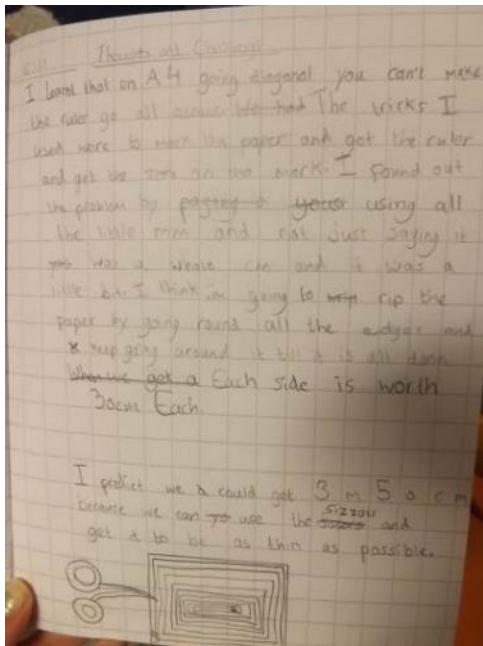 Thoughts and
I learnt that on A4 going diagonal you can't make
the ruler go all across We had The tricks I
used were to mark the paper and get the ruler
and get the zero on the mark. I found out
the problem by using all
the little mm and not just saying it
was a whole cm and it was a
little bit. I think im going to rip the
paper by going round all the edges and
keep going around it till it is all done
When we got a Each side is worth
30cm Each.
I predict we a could get 3 m 5 0 c m
because we can use the sizzors and
get it to be as thin as possible.